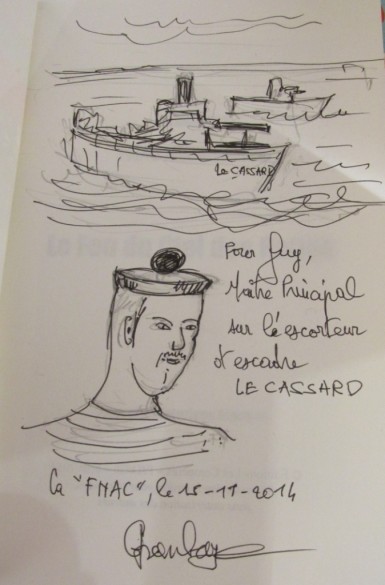 LE CASSARD
Pour Guy,
Maître Principal
sur l'escorteur
d'escadre
LE CASSARD
La "FNAC", le 15-11-2014